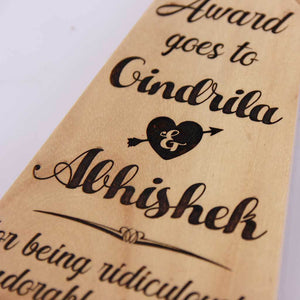 Award
goes to
Cindrila
&
Abhishek
for being ridiculously
adorable